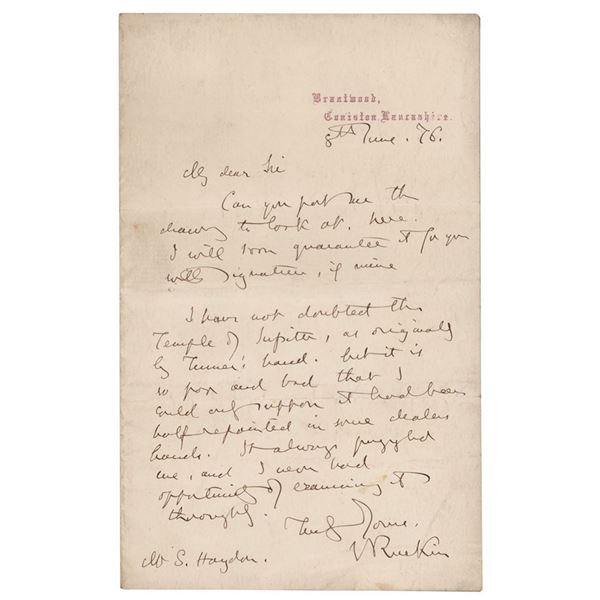 Brantwood,
Coniston, Lancashire.
8th June. 76.
My dear Sir
Can you post me the
drawing to look at. here.
I will soon guarantee it for you
with signature, if mine
I have not doubted the
Temple of Jupiter, as originally
by Turner's hand. but it is
so poor and bad that I
could only suppose it had been
half repainted in some dealers
hands. It always puzzled
me, and I never had
opportunity of examining it
thoroughly.
Truly Yours.
J Ruskin
Mr S. Haydon.